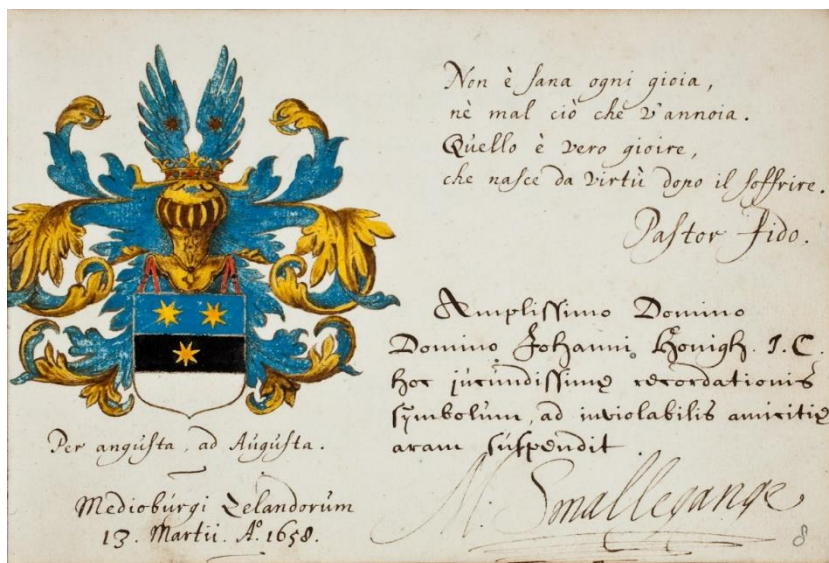 Non è sana ogni gioia,
nè mal ciò che v'annoia.
Quello è vero gioire,
che nasce da virtù dopo il soffrire.
Pastor fido.
Amplissimo Domino
Domino Johanni Honigh. I.C.
hoc jucundissimę recordationis
symbolum, ad inviolabilis amicitię
aram suspendit
M. Smallegange
Per angusta, ad Augusta.
Medioburgi Zelandorum
13. Martii. Aº. 1658.
8